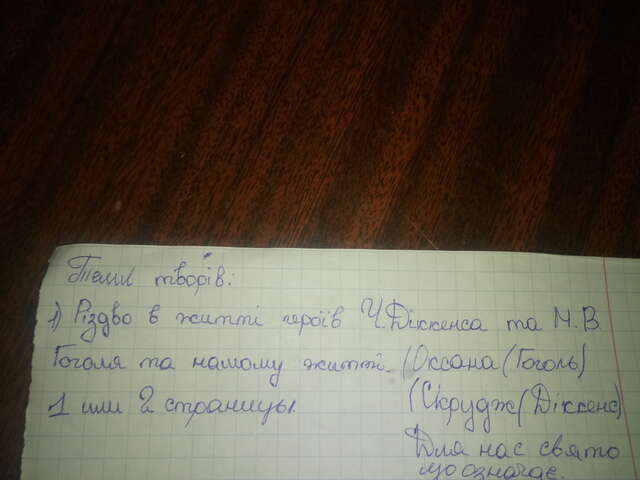 Теми творів:
1) Різдво в житті героїв Ч.Діккенса та М.В.
Гоголя та нашому житті. (Оксана (Гоголь)
1 или 2 страницы. (Скрудж (Діккенс)
Для нас свято
що означає.